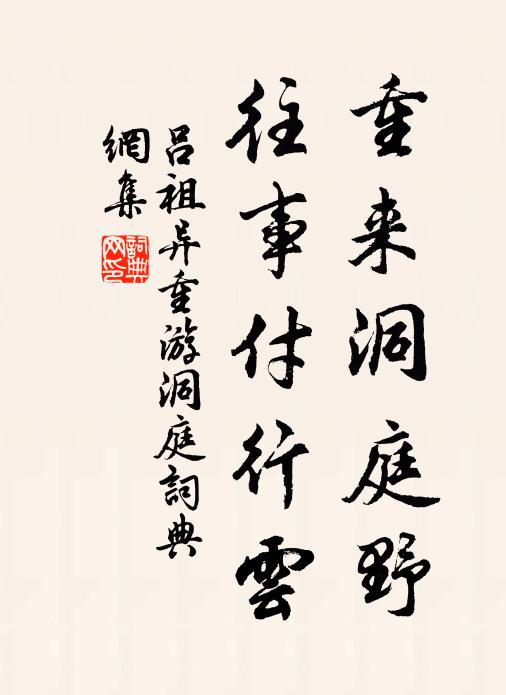 重来洞庭野
往事付行雲
吕祖异重游洞庭詞典
網集
詞典
网印